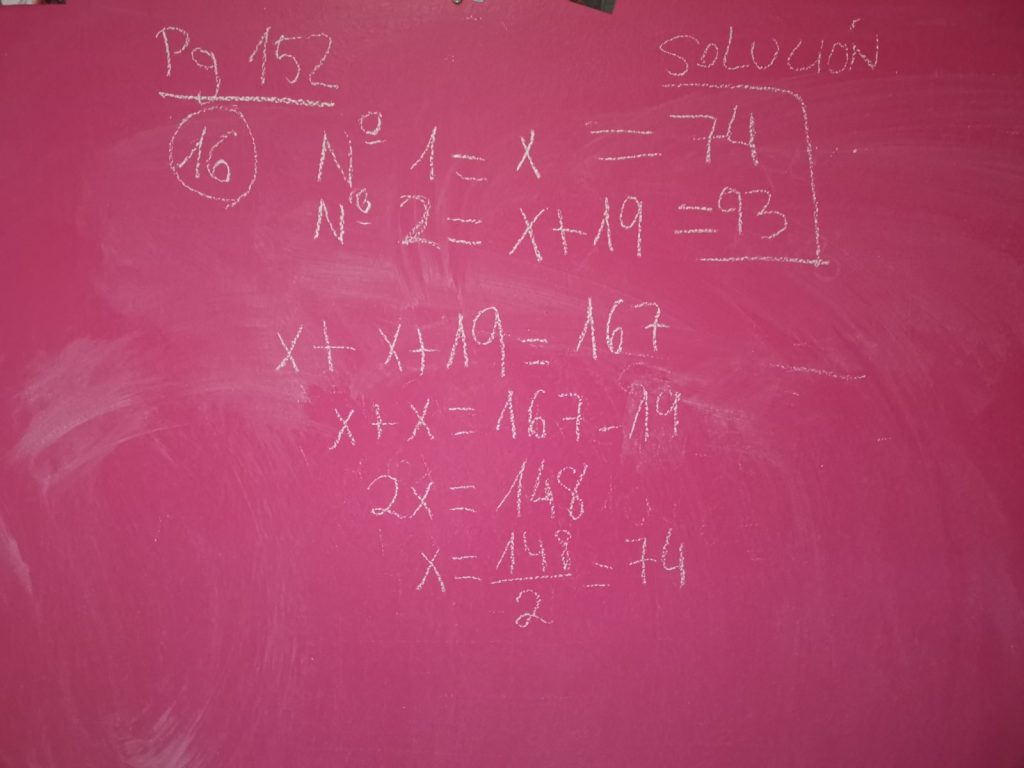 Pg 152
SOLUCIÓN
16 Nº 1 = x = 74
Nº 2 = x+19 = 93
x + x+19 = 167
x + x = 167 - 19
2x = 148
x = 148/2 = 74